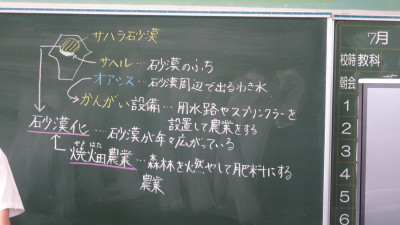 サハラ砂漠
サヘル…砂漠のふち
オアシス…砂漠周辺で出るわき水
かんがい設備…用水路やスプリンクラーを
設置して農業をする
砂漠化…砂漠が年々広がっている
やきはた
焼畑農業…森林を燃やして肥料にする
農業
7月
校時 教科
朝会
1
2
3
4
5
6